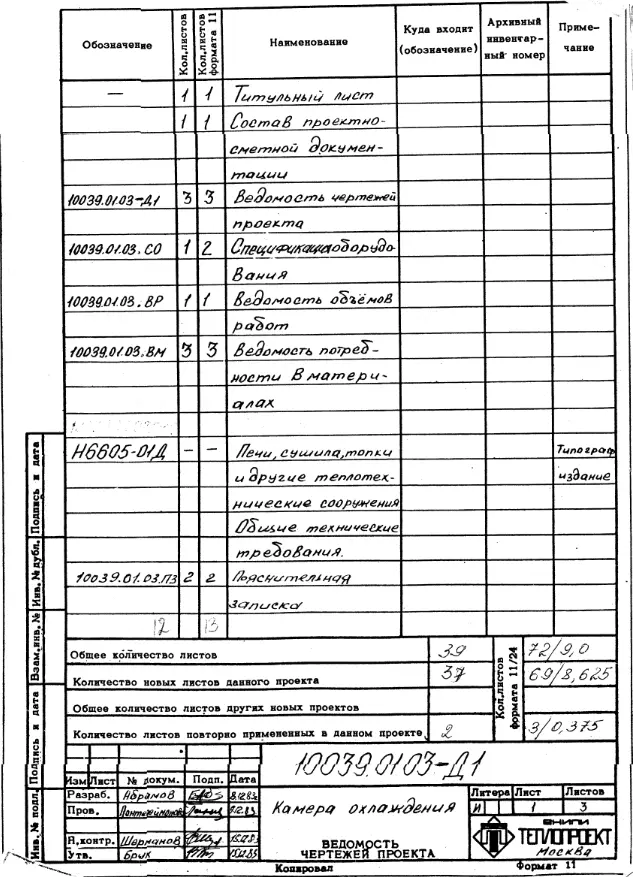 Обозначение | Кол.листов | Кол.листов формата 11 | Наименование | Куда входит (обозначение) | Архивный инвентар- ный номер | Приме- чание
— | 1 | 1 | Титульный лист
1 | 1 | Состав проектно-
сметной докумен-
тации
10039.01.03-Д1 | 3 | 3 | Ведомость чертежей
проекта
10039.01.03.СО | 1 | 2 | Спецификация оборудо-
вания
10039.01.03.ВР | 1 | 1 | Ведомость объёмов
работ
10039.01.03.ВМ | 3 | 3 | Ведомость потреб-
ности в матери-
алах
Н6605-01Д | — | — | Печи, сушила, топки | Типограф.
и другие теплотех- | издание
нические сооружения
Общие технические
требования.
10039.01.03.ПЗ | 2 | 2 | Пояснительная
записка
12 | 13
Общее количество листов | 39 | Кол.листов формата 11/24 | 72/9,0
Количество новых листов данного проекта | 37 | 69/8,625
Общее количество листов других новых проектов
Количество листов повторно примененных в данном проекте | 2 | 3/0,375
Инв. № подл. | Подпись и дата | Взам.инв. № | Инв. № дубл. | Подпись и дата
10039.0103-Д1
Изм | Лист | № докум. | Подп. | Дата
Разраб. | Абрамов
Пров.
Н.контр. | Шерманов
Утв. | Брук
Камера охлаждения
ВЕДОМОСТЬ
ЧЕРТЕЖЕЙ ПРОЕКТА
Литера | Лист | Листов
И | 1 | 3
ВНИПИ
ТЕПЛОПРОЕКТ
Москва
Копировал | Формат 11